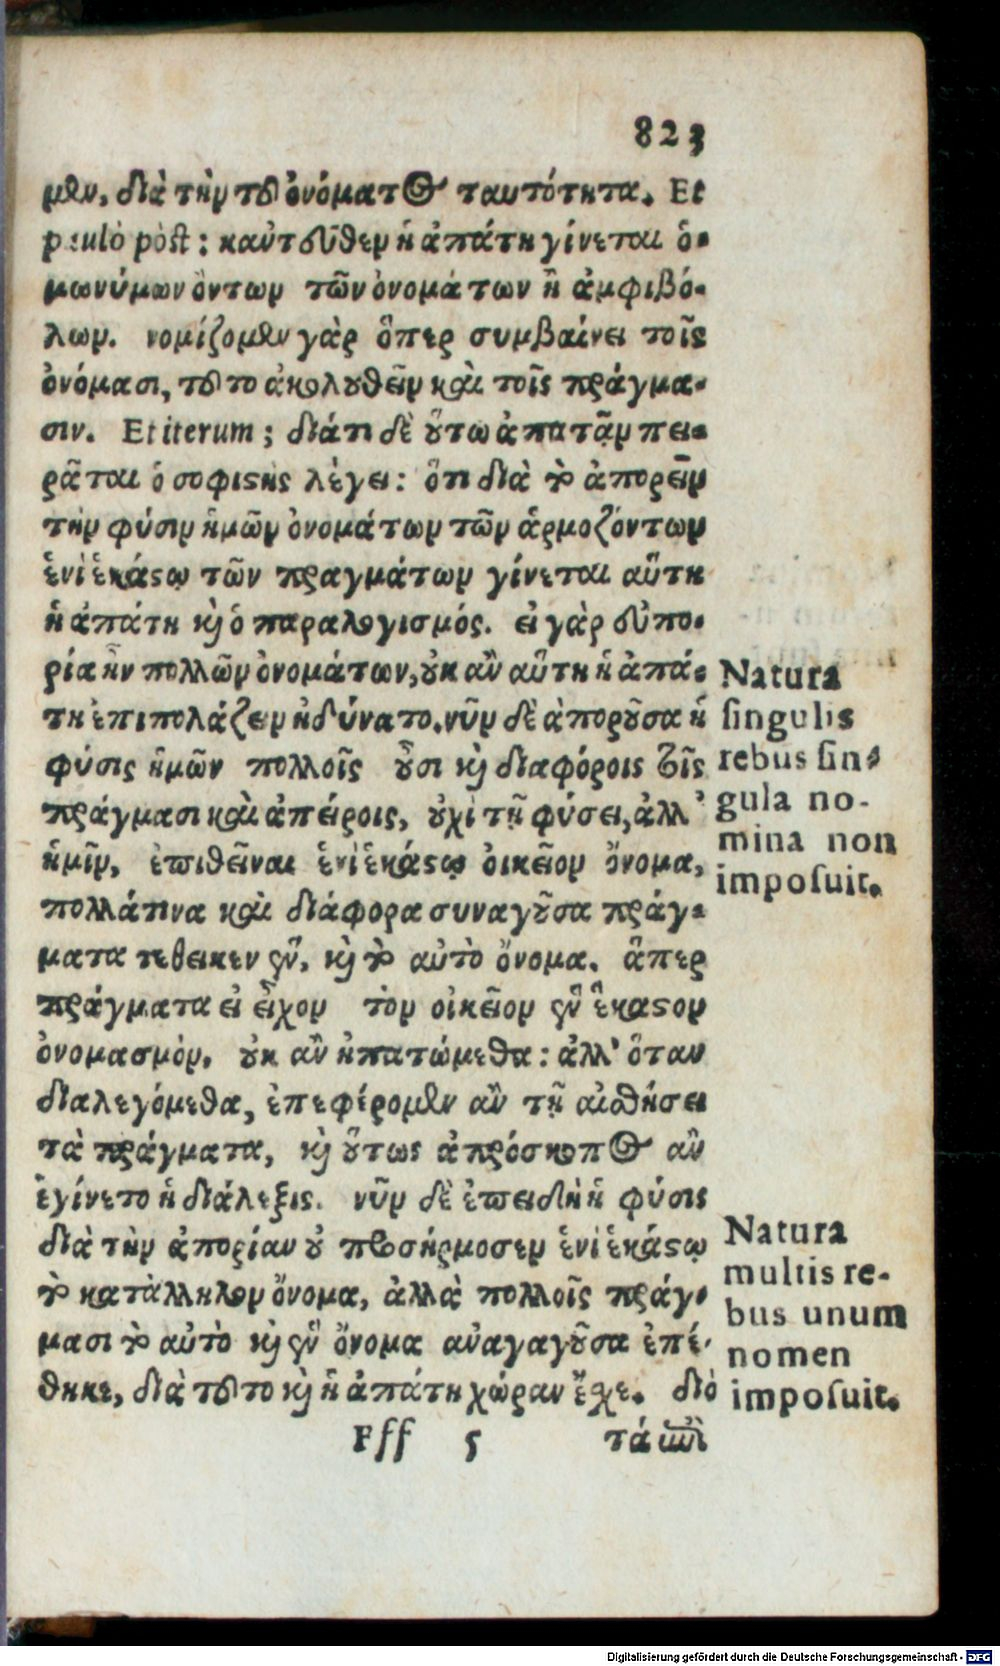 823
μϸν, διὰ τὴν τοῦ ὀνόματος ταυτότητα. Et
paulò pòst: καὐτεῦθεν ἡ ἀπάτη γίνεται ὁ-
μωνύμων ὄντων τῶν ὀνομάτων ἢ ἀμφιβό-
λων. νομίζομεν γὰρ ὅπερ συμβαίνει τοῖς
ὀνόμασι, τοῦτο ἀκολουθεῖν καὶ τοῖς πράγμα-
σιν. Et iterum; διάτι δὲ οὕτω ἀπατᾷν πει-
ρᾶται ὁ σοφιστὴς λέγει: ὅτι διὰ τὸ ἀπορεῖν
τὴν φύσιν ἡμῶν ὀνομάτων τῶν ἁρμοζόντων
ἑνὶ ἑκάστῳ τῶν πραγμάτων γίνεται αὕτη
ἡ ἀπάτη καὶ ὁ παραλογισμός. εἰ γὰρ εὐπο-
ρία ἦν πολλῶν ὀνομάτων, οὐκ ἂν αὕτη ἡ ἀπά-
τη ἐπιπολάζειν ἠδύνατο. νῦν δὲ ἀποροῦσα ἡ
φύσις ἡμῶν πολλοῖς οὖσι καὶ διαφόροις τοῖς
πράγμασι καὶ ἀπείροις, οὐχὶ τῇ φύσει, ἀλλ'
ἡμῖν, ἐπιθεῖναι ἑνὶ ἑκάστῳ οἰκεῖον ὄνομα,
πολλά τινα καὶ διάφορα συναγοῦσα πράγ-
ματα τεθεικεν ἓν, καὶ τὸ αὐτὸ ὄνομα. ἅπερ
πράγματα εἰ εἶχον τὸν οἰκεῖον ἓν ἕκαστον
ὀνομασμὸν, οὐκ ἂν ἠπατώμεθα: ἀλλ' ὅταν
διαλεγόμεθα, ἐπεφέρομεν ἂν τῇ αἰσθήσει
τὰ πράγματα, καὶ οὕτως ἀπρόσκοπος ἂν
ἐγίνετο ἡ διάλεξις. νῦν δὲ ἐπειδὴ ἡ φύσις
διὰ τὴν ἀπορίαν οὐ προσήρμοσεν ἑνὶ ἑκάστῳ
τὸ κατὰλληλον ὄνομα, ἀλλὰ πολλοῖς πράγ-
μασι τὸ αὐτὸ καὶ ἓν ὄνομα ἀναγαγοῦσα ἐπέ-
θηκε, διὰ τοῦτο καὶ ἡ ἀπάτη χώραν ἔχε. διὸ
Fff 5 τά
Natura
singulis
rebus sin-
gula no-
mina non
imposuit.
Natura
multis re-
bus unum
nomen
imposuit.
Digitalisierung gefördert durch die Deutsche Forschungsgemeinschaft - DFG